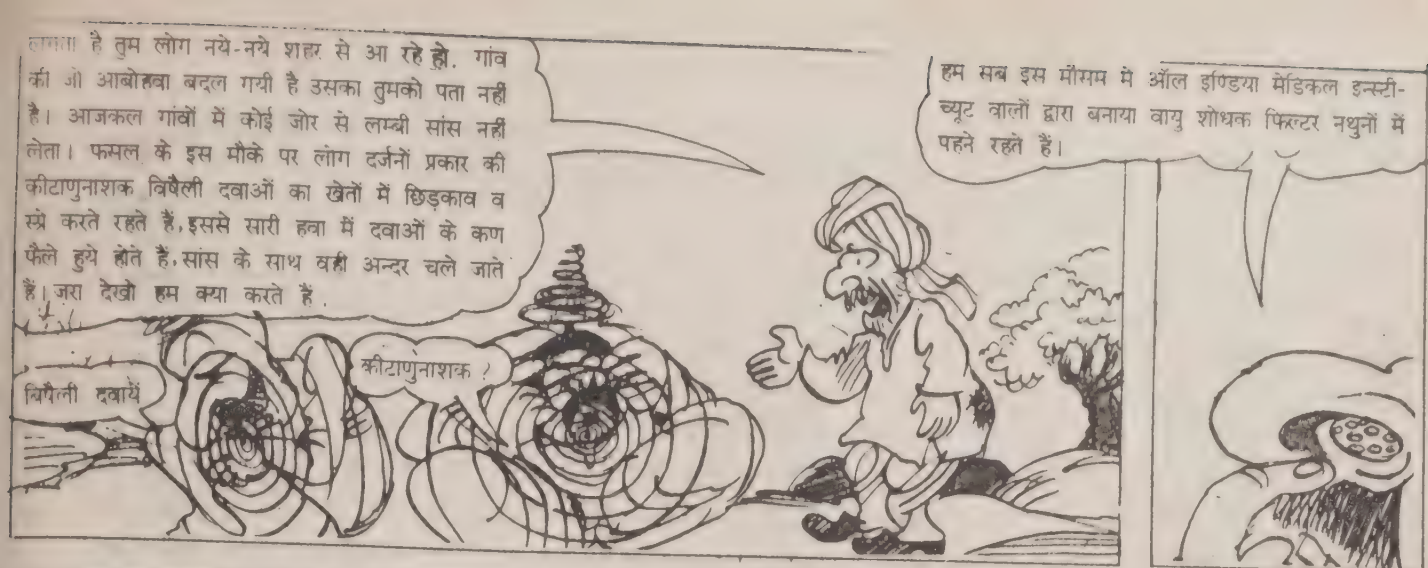 लगता है तुम लोग नये-नये शहर से आ रहे हो. गांव
की जो आबोहवा बदल गयी है उसका तुमको पता नहीं
है। आजकल गांवों में कोई जोर से लम्बी सांस नहीं
लेता। फसल के इस मौके पर लोग दर्जनों प्रकार की
कीटाणुनाशक विषैली दवाओं का खेतों में छिड़काव व
स्प्रे करते रहते हैं, इससे सारी हवा में दवाओं के कण
फैले हुये होते हैं, सांस के साथ वही अन्दर चले जाते
हैं। जरा देखो हम क्या करते हैं.
विषैली दवायें
कीटाणुनाशक ?
हम सब इस मौसम में ऑल इण्डिया मेडिकल इन्स्टी-
च्यूट वालों द्वारा बनाया वायु शोधक फिल्टर नथुनों में
पहने रहते हैं।